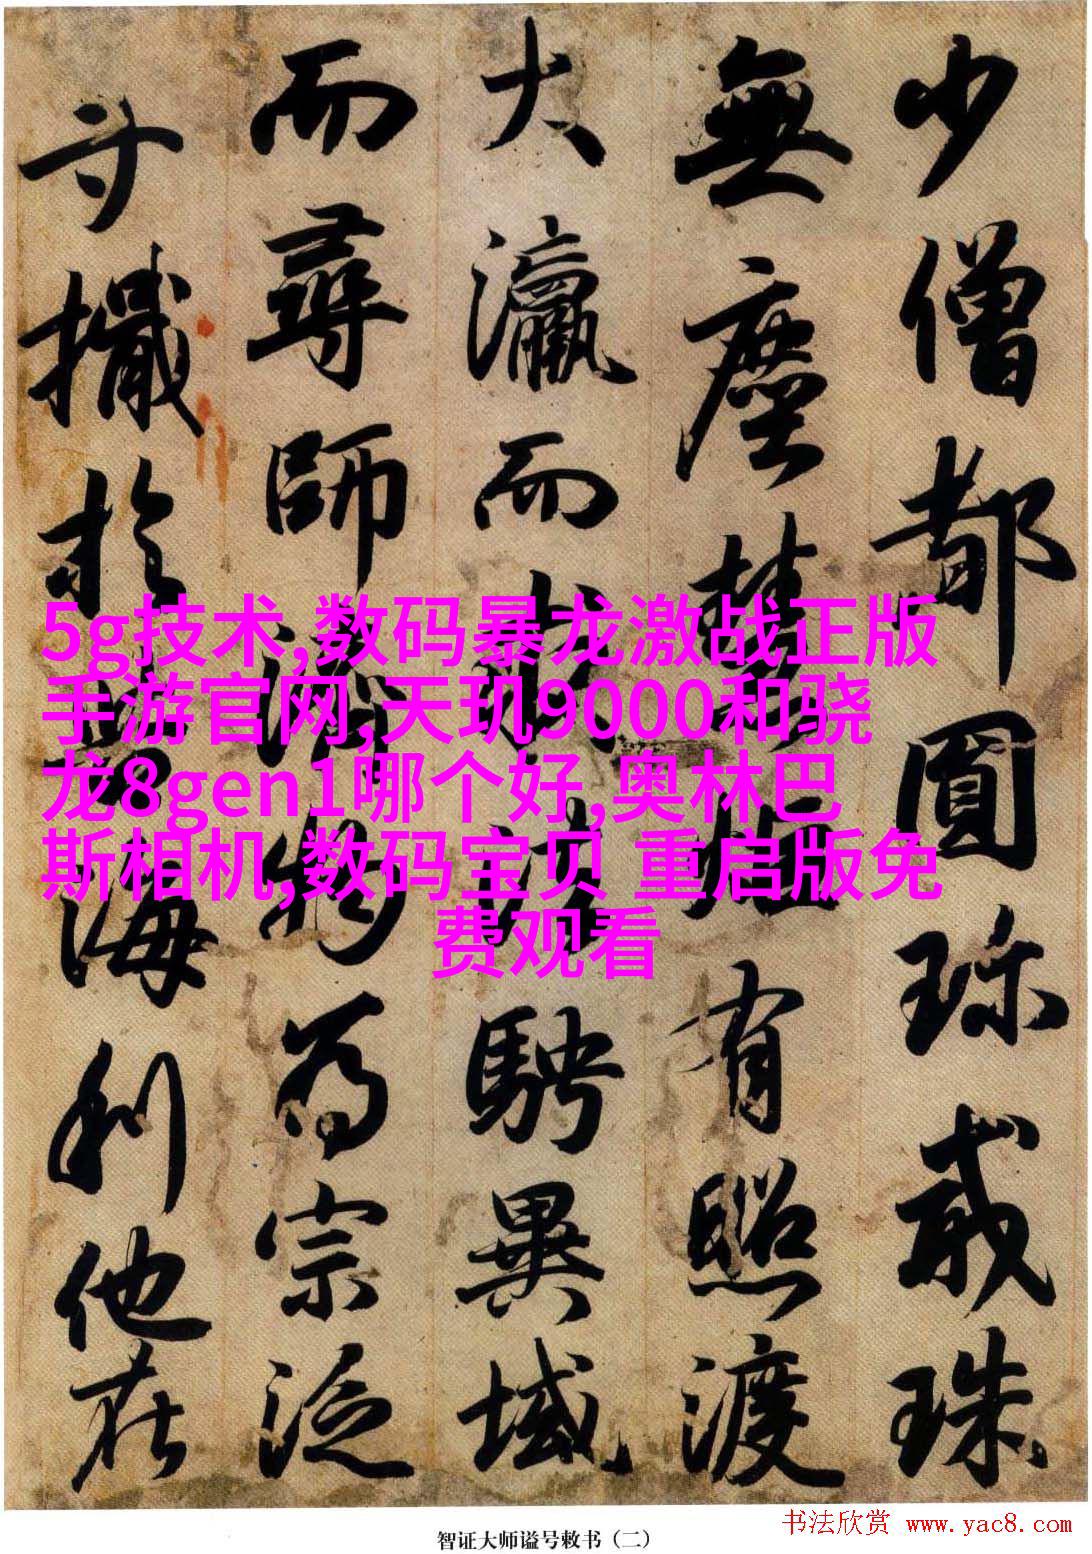 少僧都圓珎戒珠
無塵慧炬有照渡
大瀛而求法騁異域
而尋師濟物為宗泛
寸檝於海利他在
5g技术,数码暴龙激战正版
手游官网,天玑9000和骁
龙8gen1哪个好,奥林巴
斯相机,数码宝贝 重启版免
费观看
智证大师谥号敕书（二）
书法欣赏 www.yac8.com